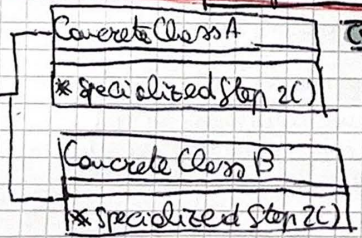 ConcreteClassA
* specializedStep2()
Concrete Class B
* specializedStep2()